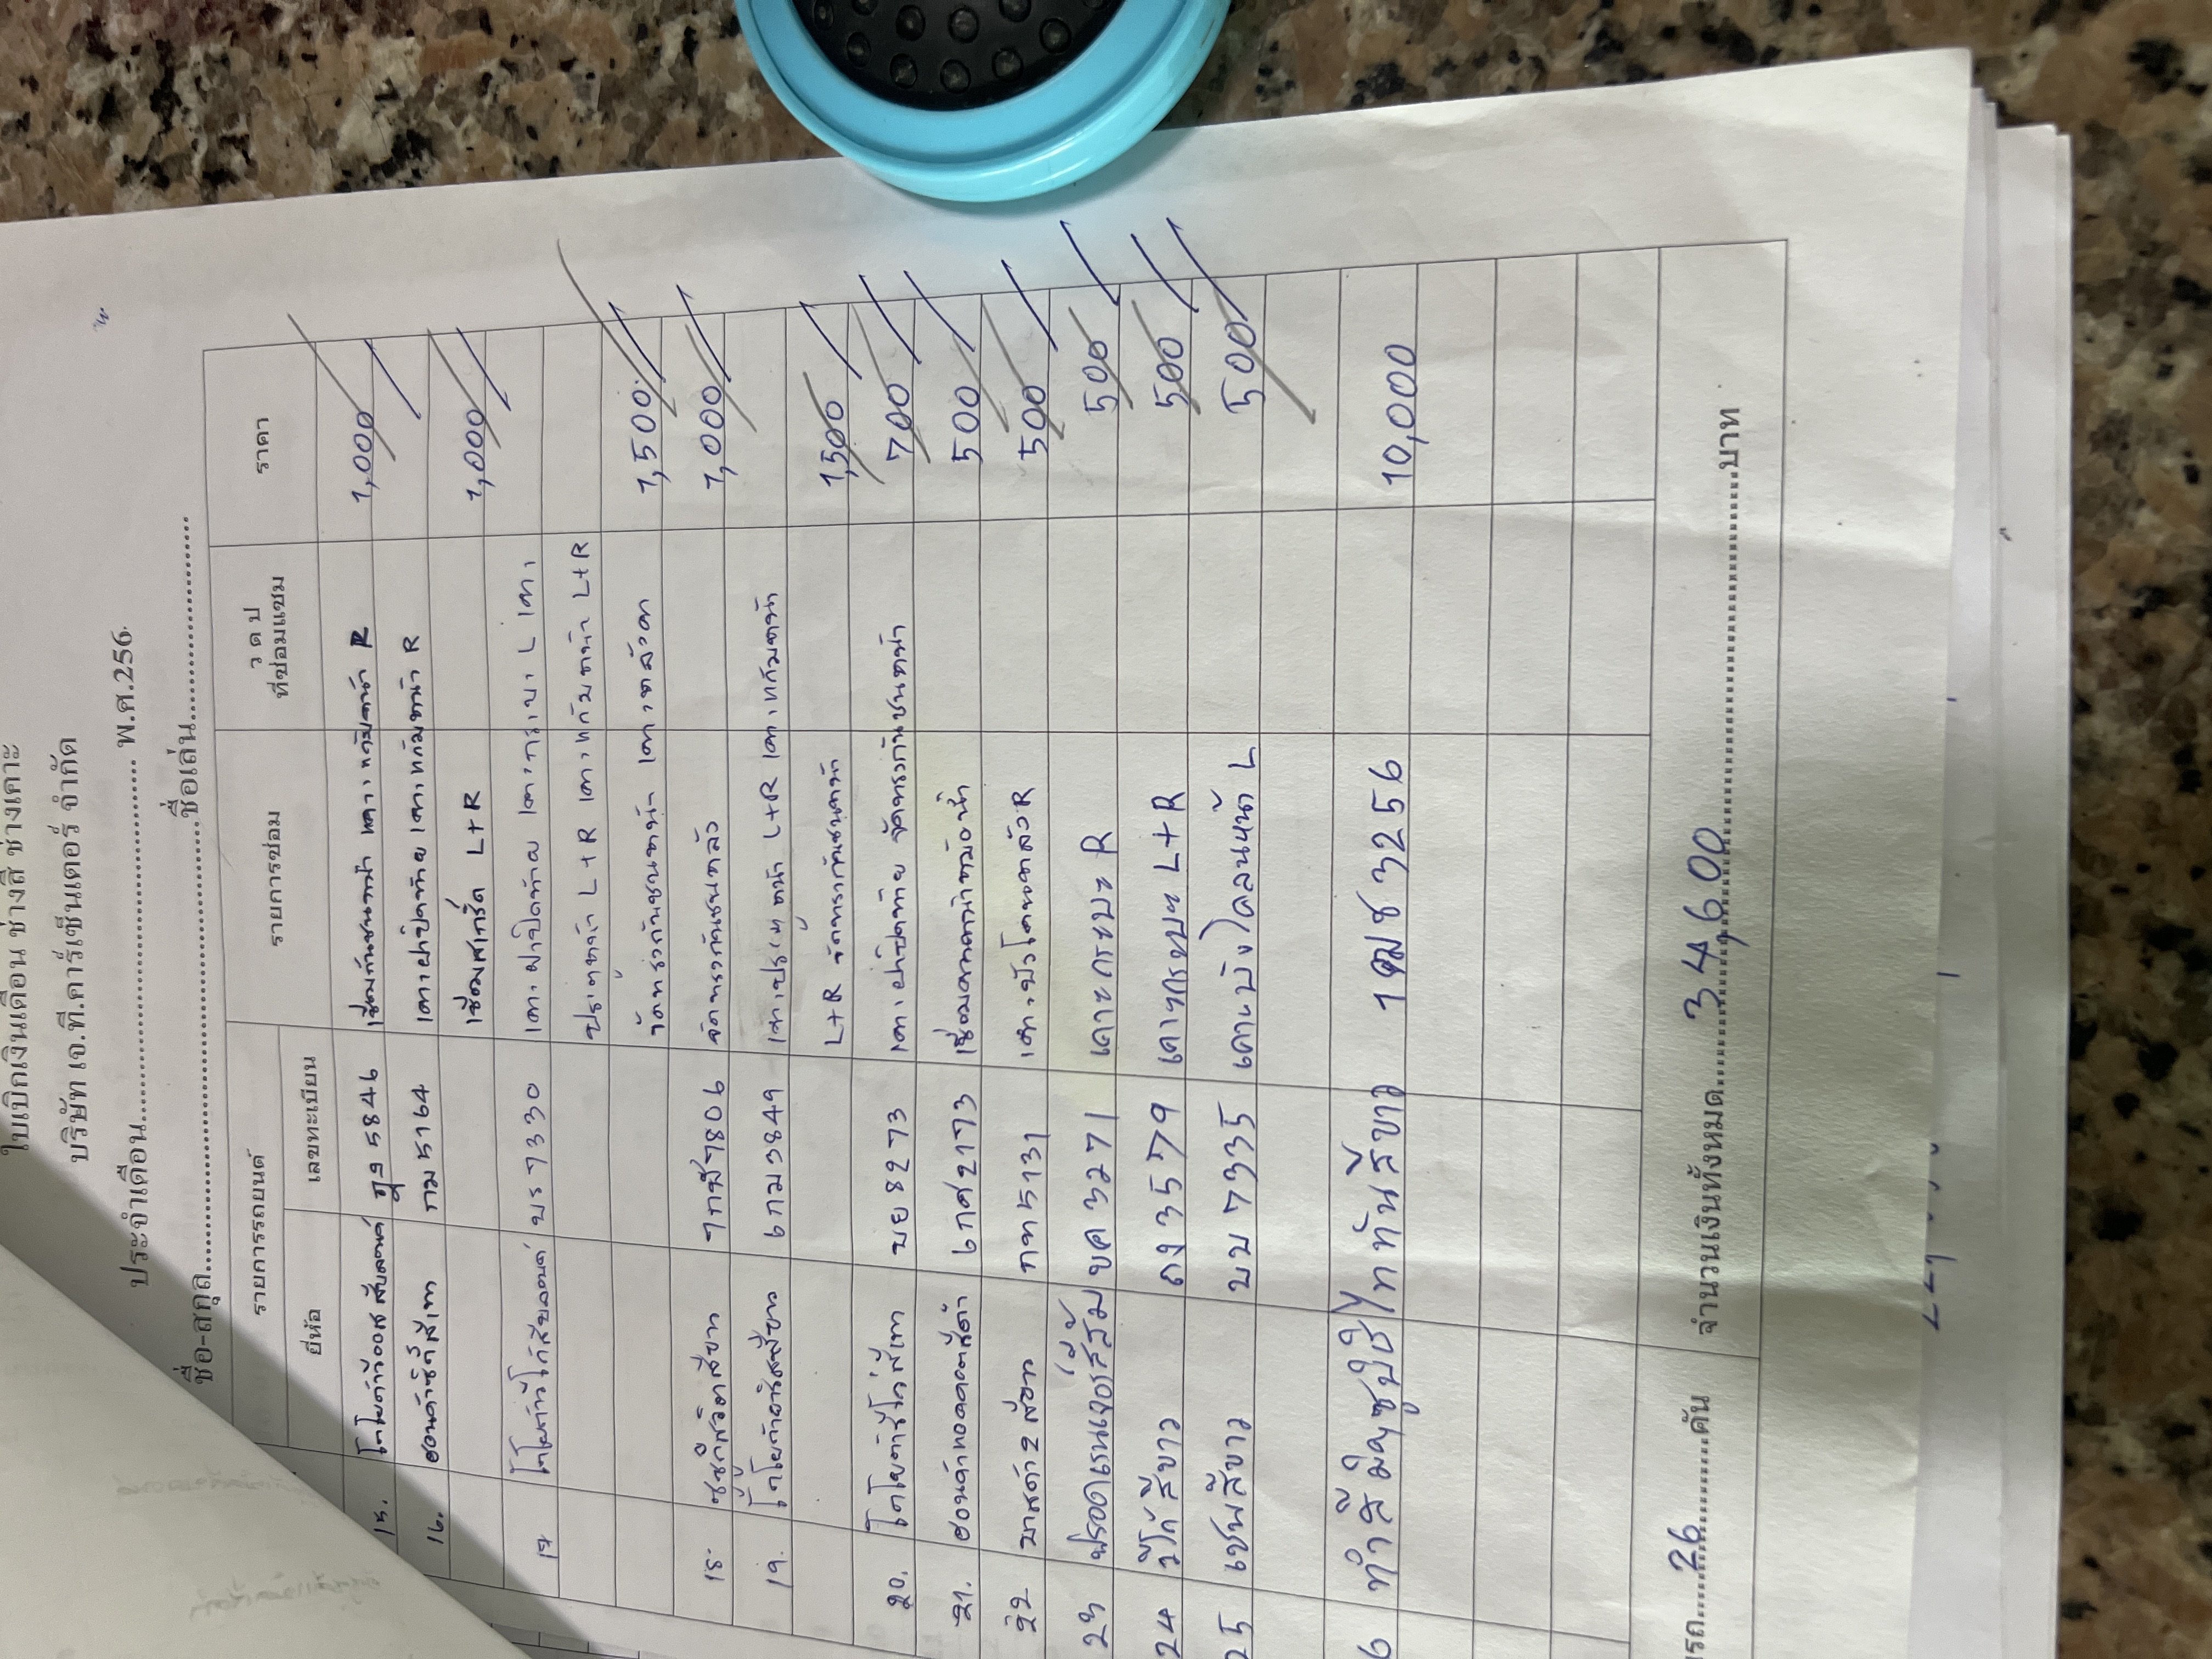 ใบเบิกเงินเดือน ช่างสี ช่างเคาะ
บริษัท เจ.ที.คาร์เซ็นเตอร์ จำกัด
ประจำเดือน.................... พ.ศ.256
ชื่อ-สกุล....................ชื่อเล่น....................
รายการรถยนต์ รายการซ่อม ว ด ป ที่ซ่อมแซม ราคา
ยี่ห้อ เลขทะเบียน
15. 5846 เชื่อมกันชนหน้า เคาะแก้มหน้า R 1,000
16. ฮอนด้าซิตี้สีเทา กม 5164 เคาะฝาปิดท้าย เคาะแก้มหน้า R
เชื่อมสเกิร์ต L+R 1,000
17 บร 7330 เคาะฝาปิดท้าย เคาะกระบะ L เคาะ
ประตูหน้า L+R เคาะแก้มหน้า L+R
จัดทรงกันชนหน้า เคาะหลังคา 1,500
18. ซูซูกิสวิฟสีขาว 7กฬ 7806 จัดทรงกันชนหลัง 1,000
19. โตโยต้ายาริสสีขาว 6กม 3849 เคาะประตูหน้า L+R เคาะแก้มหน้า
L+R จัดทรงกันชนหน้า 1,500
20. โตโยต้ารีโว่สีเทา บย 8273 เคาะฝาปิดท้าย จัดทรงกันชนหน้า 700
21. 6กศ 2173 เชื่อมคานหน้าหม้อน้ำ 500
22 มาสด้า 2 สีเทา กท 5131 เคาะบังโคลนหลัง R 500
23 ฟรอดเรนเจอร์สีส้ม ขค 3271 เคาะกระบะ R 500
24 วีโก้สีขาว ถง 3579 เคาะกระบะ L+R 500
25 เชฟสีขาว บบ 7335 เคาะบังโคลนหน้า L 500
6 ทำสีมิตซูบิชิไททันสีขาว 1ฒช 3256 10,000
รถ....26....คัน จำนวนเงินทั้งหมด....34,600....บาท